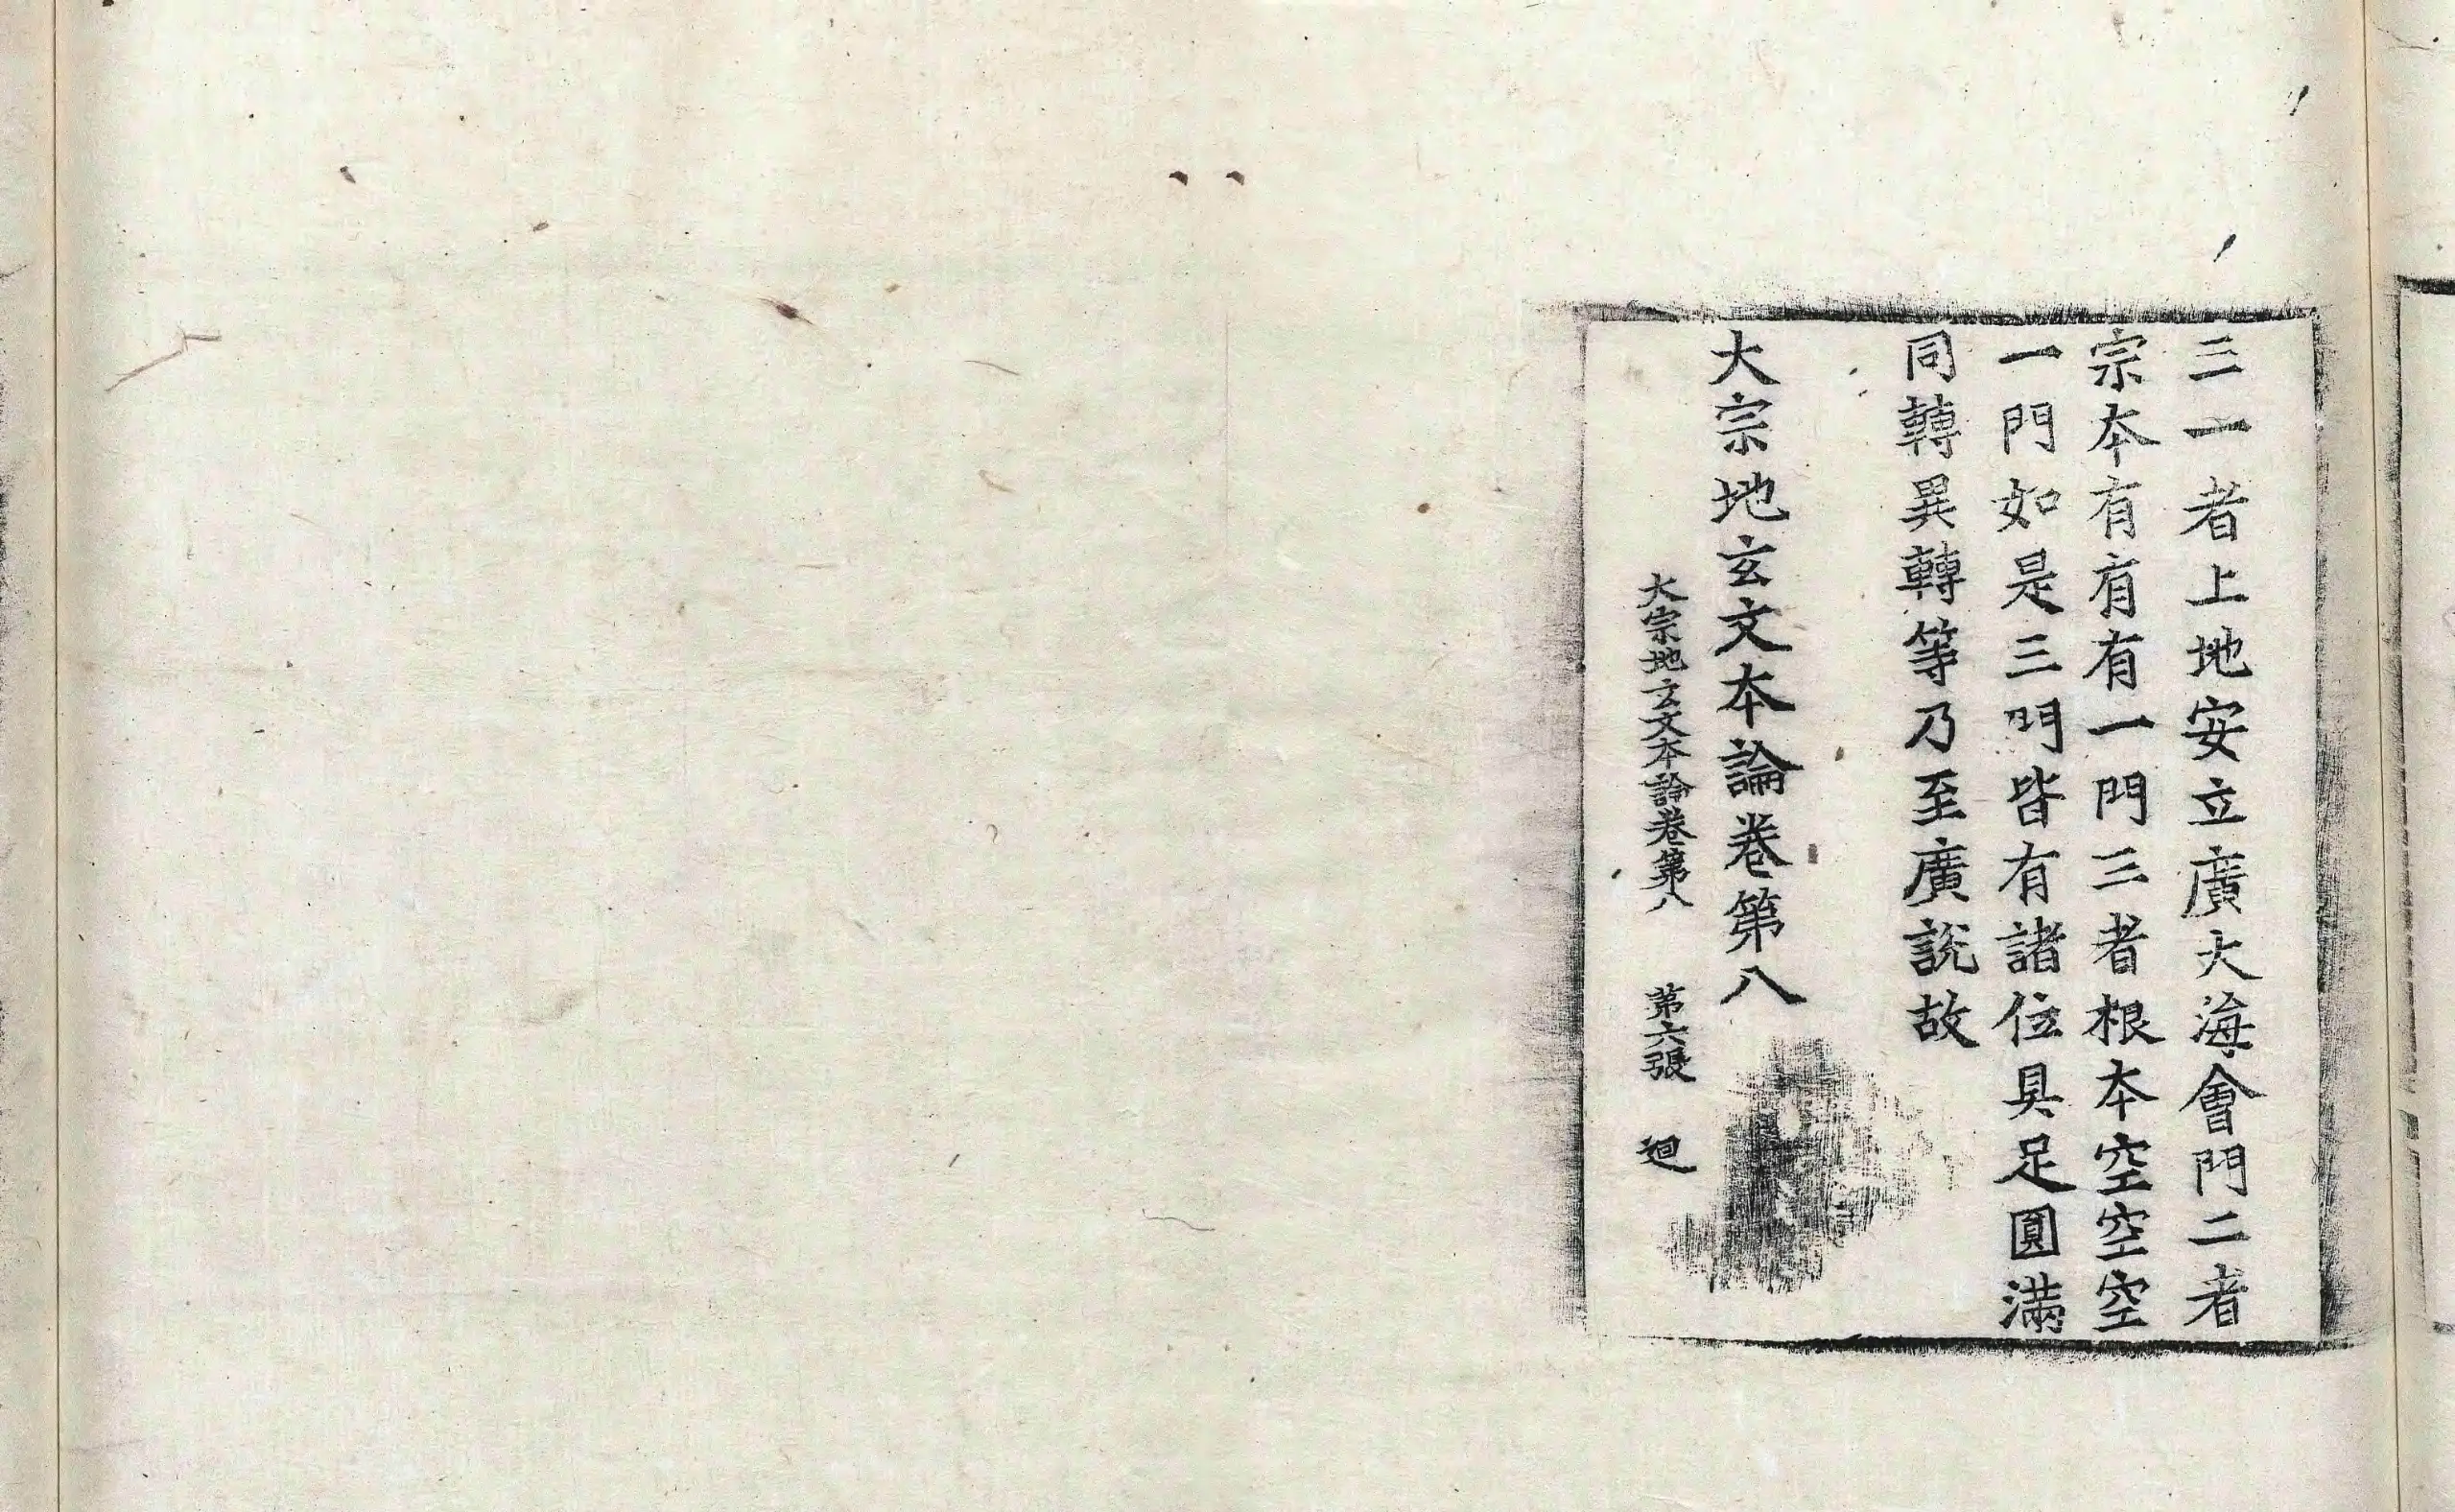 三一者上地安立廣大海會門二者
宗本有有有一門三者根本空空空
一門如是三門皆有諸位具足圓滿
同轉異轉等乃至廣說故
大宗地玄文本論卷第八
大宗地玄文本論卷第八 第六張 迴